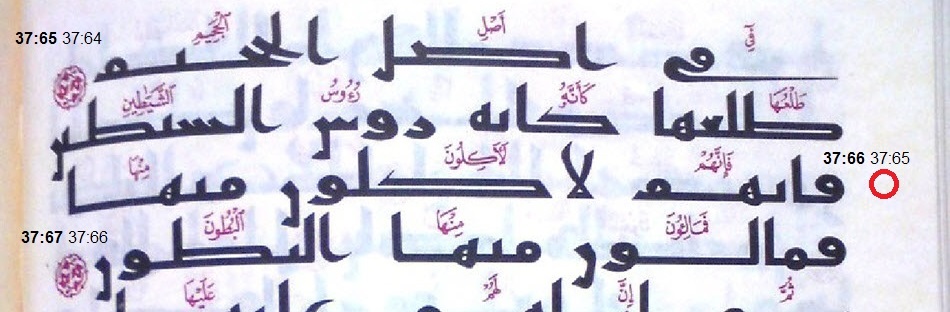 37:65 37:64
فِيٓ أَصْلِ ٱلْجَحِيمِ
في اصل الجحيم
طَلْعُهَا كَأَنَّهُۥ رُءُوسُ ٱلشَّيَٰطِينِ
طلعها كانه روس الشيطين
37:66 37:65
فَإِنَّهُمْ لَأٓكِلُونَ مِنْهَا
فانهم لاكلون منها
37:67 37:66
فَمَالِـُٔونَ مِنْهَا ٱلْبُطُونَ
فمالون منها البطون
ثُمَّ إِنَّ لَهُمْ عَلَيْهَا